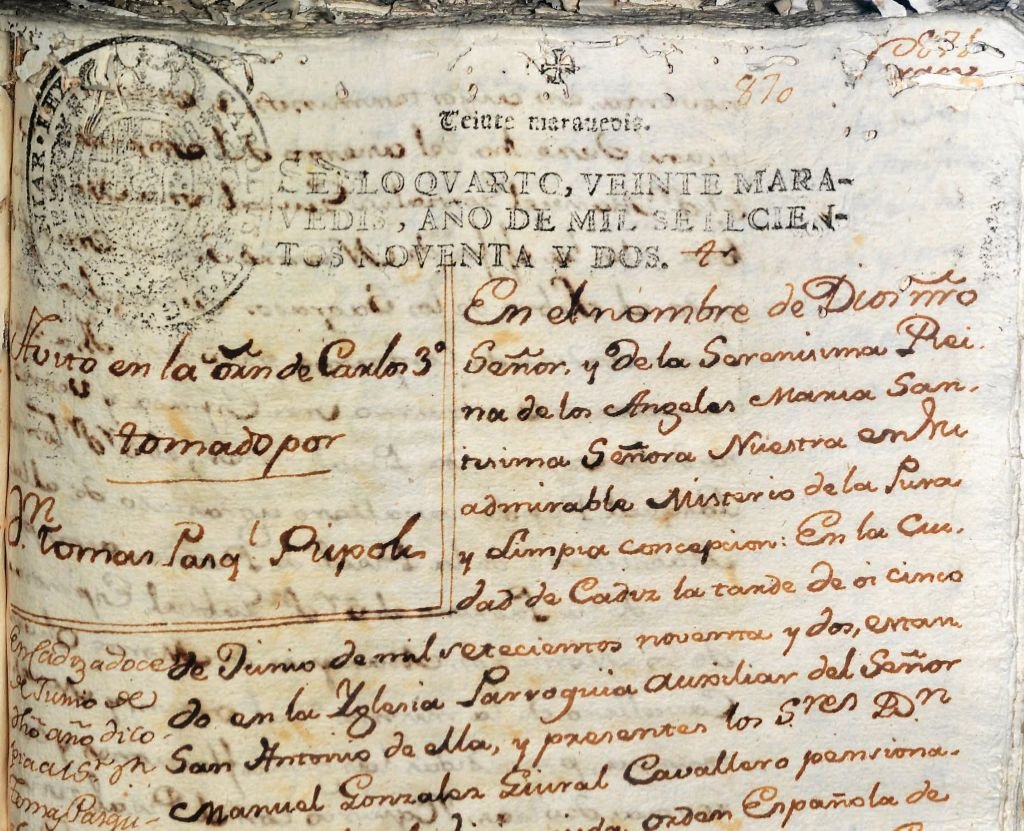 870
Veinte maravedis.
SELLO QVARTO, VEINTE MARA-
VEDIS, AÑO DE MIL SETECIEN-
TOS NOVENTA Y DOS.
Avito en la Orn de Carlos 3º
tomado por
Dn. Tomas Pasql Ripoll
En el nombre de Dios nro
Señor, y de la Serenisima Rei-
na de los Angeles Maria San-
tisima Señora Nuestra en su
admirable Misterio de la Pura
y Limpia concepcion: En la Ciu-
dad de Cadiz la tarde de oi cinco
de Junio de mil setecientos noventa y dos, estan-
do en la Yglesia Parroquia auxiliar del Señor
San Antonio de ella, y presentes los Sres Dn
Manuel Gonzales Guiral Cavallero pensiona-
orden Española de
En Cadiz a doce
de Junio de
dho año di co-
pia al Sr Dn
Tomas Pasqu-